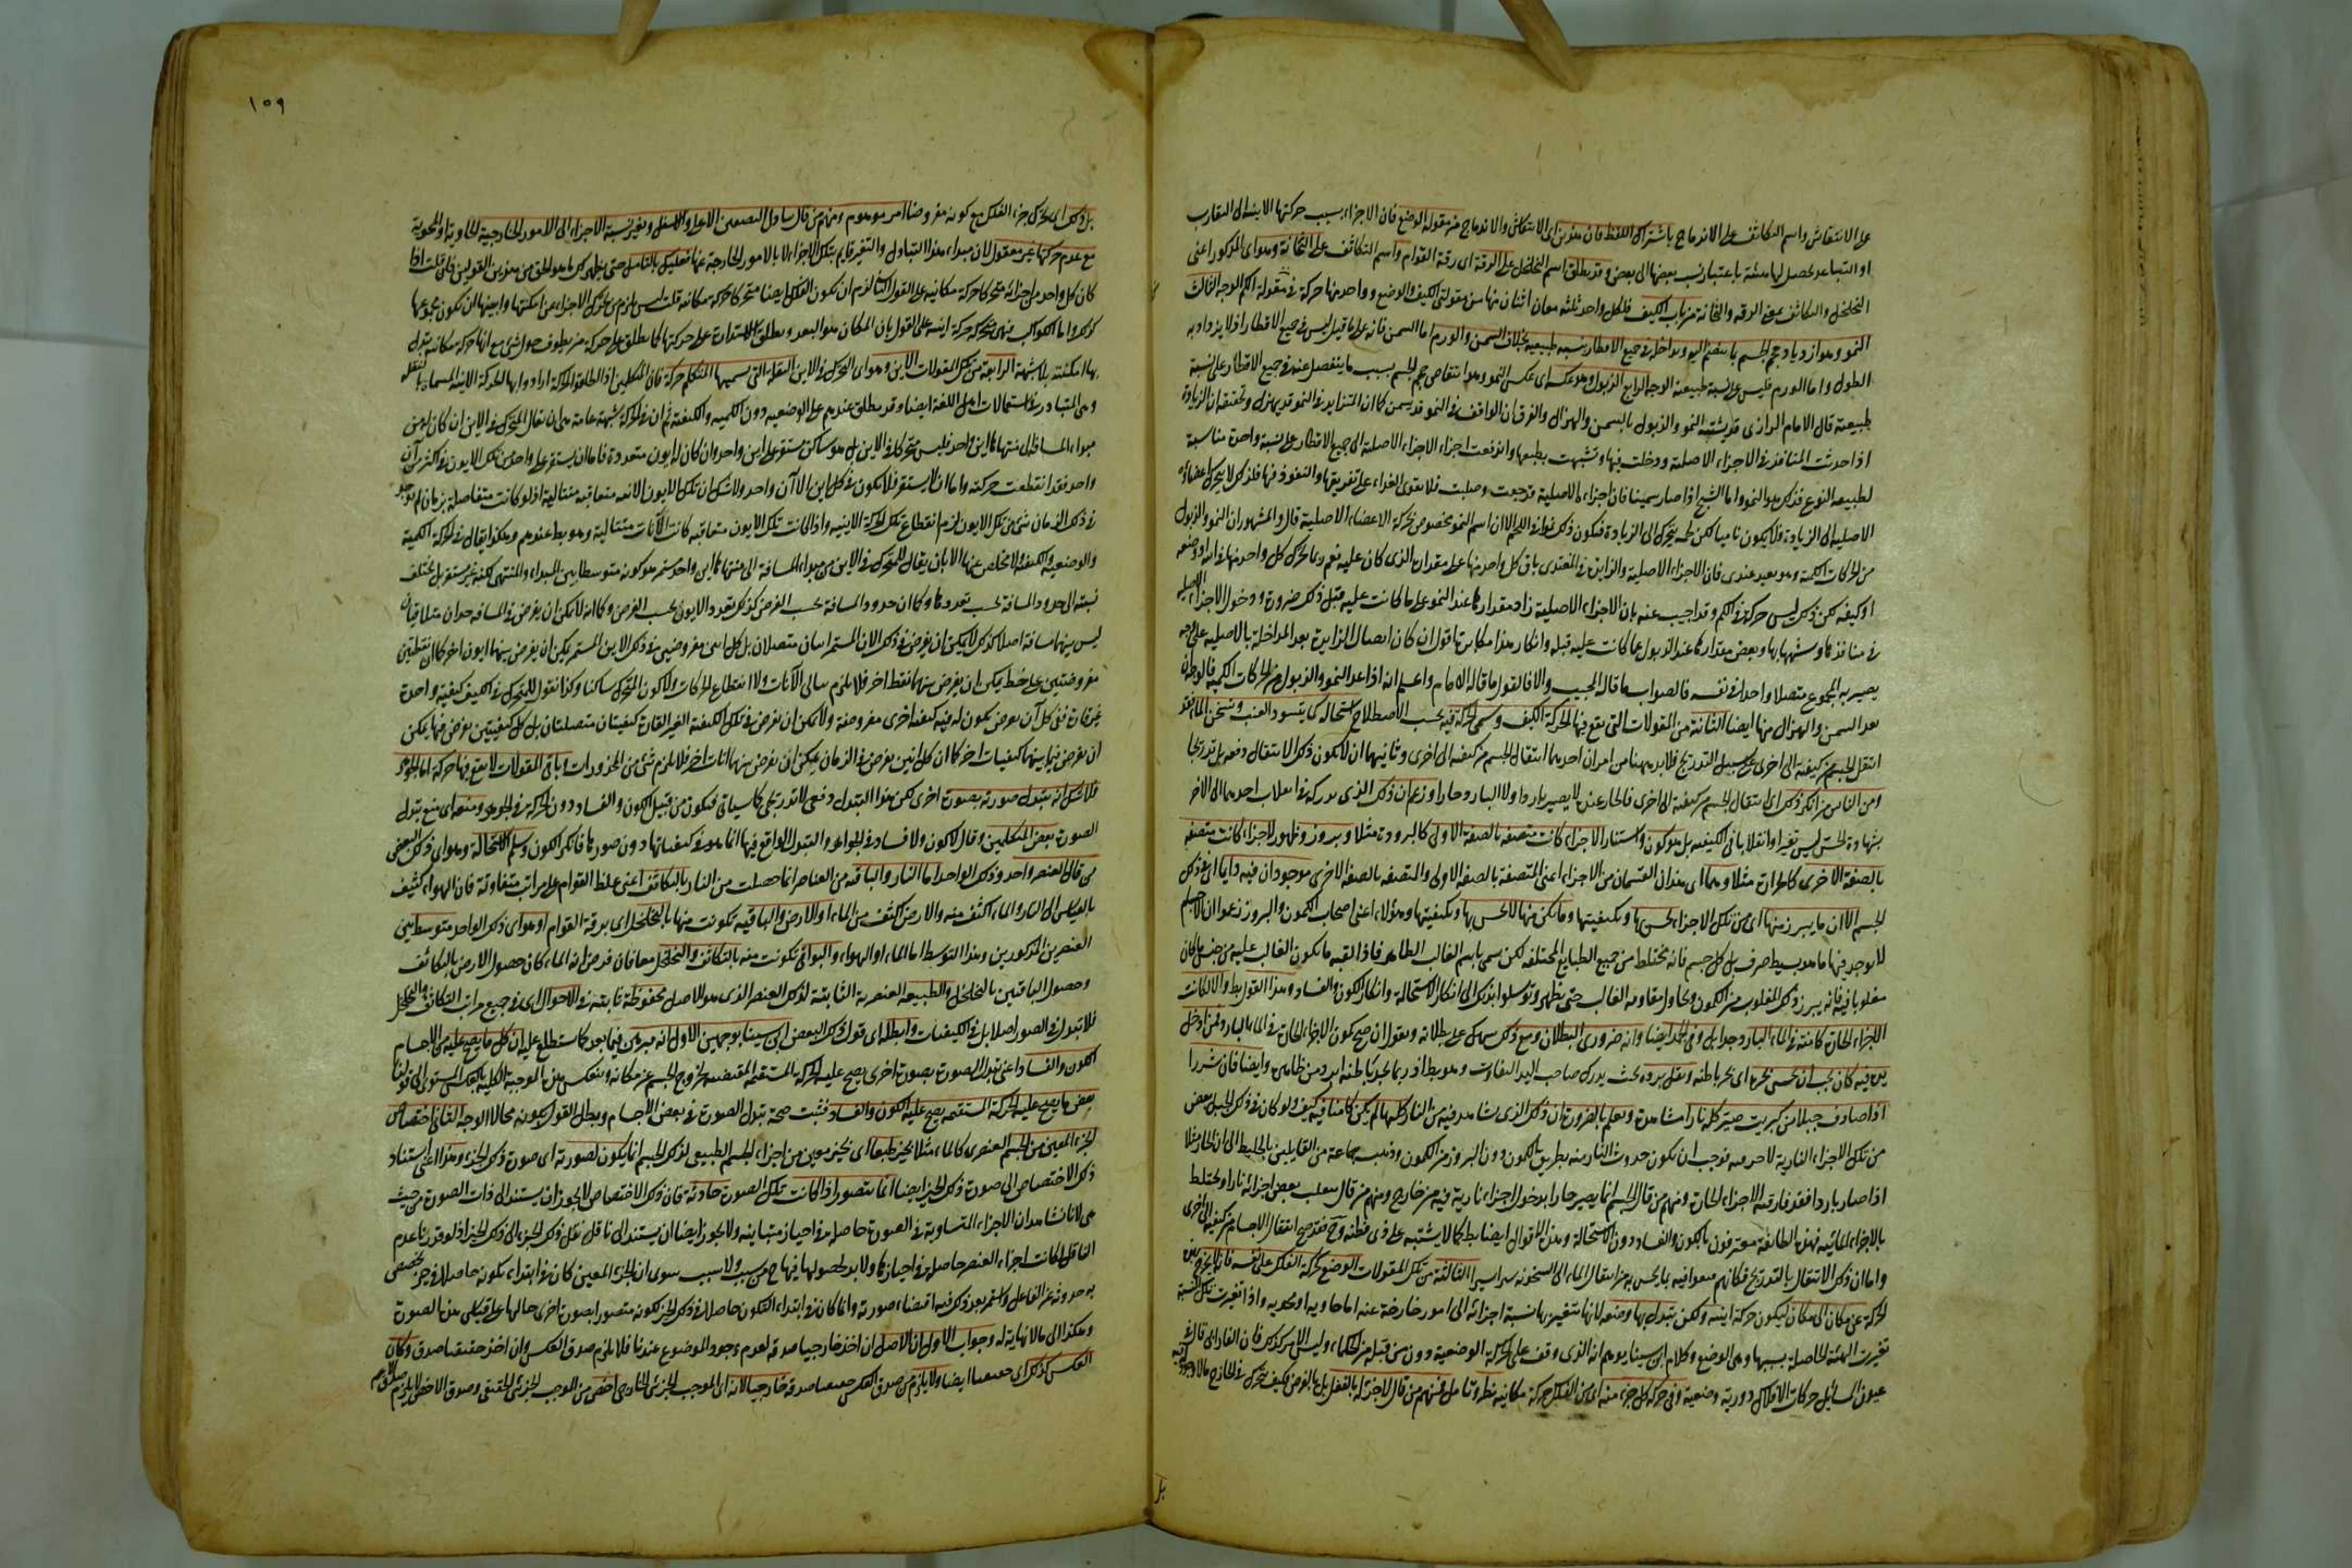 على الانتفاش واسم التكاثف على الاندماج باشتراك اللفظ فان هذين اى الانتفاش والاندماج من مقولة الوضع فان الاجزاء بسبب حركتها الاينية الى التقارب
او التباعد تحصل لها هيئة باعتبار نسب بعضها الى بعض وقد يطلق اسم التخلخل على الرقة اى رقة القوام واسم التكاثف على الثخانة وهو اى المذكور اعنى
التخلخل والتكاثف بمعنى الرقة والثخانة من باب الكيف فلكل واحد ثلثة معان اثنان منها من مقولتى الكيف والوضع وواحد منها حركة فى مقولة الكم الوجه الثالث
النمو وهو ازدياد حجم الجسم بما ينضم اليه ويداخله فى جميع الاقطار بنسبة طبيعية بخلاف السمن والورم اما السمن فانه على ما قيل ليس فى جميع الاقطار اذ لا يزداد به
الطول واما الورم فليس على نسبة طبيعية الوجه الرابع الذبول وهو عكسه اى عكس النمو وهو انتقاص حجم الجسم بسبب ما ينفصل عنه فى جميع الاقطار على نسبة
طبيعية قال الامام الرازى قد يشتبه النمو والذبول بالسمن والهزال والفرق ان الواقف فى النمو قد يسمن كما ان المتزايد فى النمو قد يهزل وتحقيقه ان الزيادة
اذا احدثت المنافذ فى الاجزاء الاصلية ودخلت فيها وتشبهت بطبيعتها واندفعت اجزاء الاجزاء الاصلية الى جميع الاقطار على نسبة واحدة مناسبة
لطبيعة النوع فذلك هو النمو واما الشيخ اذا صار سمينا فان اجزاءه الاصلية قد جفت وصلبت فلا يقوى الغذاء على تفريقها والنفوذ فيها فلذلك لا يتحرك اعضاؤه
الاصلية الى الزيادة ولا يكون ناميا لكن لحمه يتحرك الى الزيادة فيكون ذلك نموا فى اللحم الا ان اسم النمو مخصوص بحركة الاعضاء الاصلية قال والمشهور ان النمو والذبول
من الحركات الكمية وهو بعيد عندى فان الاجزاء الاصلية والزايدة فى المغتذى باق كل واحد منها على مقداره الذى كان عليه نعم ربما تحرك كل واحد منها فى اينه او وضعه
او كيفه لكن ذلك ليس حركة فى الكم وقد اجيب عنه بان الاجزاء الاصلية زاد مقدارها عند النمو على ما كانت عليه قبل ذلك ضرورة دخول الاجزاء
فى منافذها وتشبهها بها ونقص مقدارها عند الذبول عما كانت عليه قبله وانكار هذا مكابرة اقول ان كان اتصال الزايدة بعد المداخلة بالاصلية على وجه
يصير به المجموع متصلا واحدا فى نفسه فالصواب ما قاله المجيب والا فالقول ما قاله الامام واعلم انه اذا عد النمو والذبول من الحركات الكمية فالوجه ان
يعد السمن والهزال منها ايضا الثانية من المقولات التى يقع فيها الحركة الكيف وتسمى الحركة فيه بحسب الاصطلاح استحالة كما يتسود العنب ويتسخن الماء فقد
انتقل الجسم من كيفية الى اخرى على سبيل التدريج فلا بد ههنا من امرين احدهما انتقال الجسم من كيفية الى اخرى وثانيهما ان لا يكون ذلك الانتقال دفعة بل تدريجا
ومن الناس من انكر ذلك اى انتقال الجسم من كيفية الى اخرى فالحار عنده لا يصير باردا ولا البارد حارا وزعم ان ذلك الذى يدركه فى انقلاب احدهما الى الاخر
بشهادة الحس ليس تغيرا وانقلابا فى الكيفية بل هو كمون واستتار لاجزاء كانت متصفة بالصفة الاولى كالبرودة مثلا وبروز وظهور لاجزاء كانت متصفة
بالصفة الاخرى كالحرارة مثلا وهما اى هذان القسمان من الاجزاء اعنى المتصفة بالصفة الاولى والمتصفة بالصفة الاخرى موجودان فيه دايما اى فى ذلك
الجسم الا ان ما يبرز منها اى من تلك الاجزاء يحس بها وبكيفيتها وما يكمن منها لا يحس بها وبكيفيتها وهؤلاء اعنى اصحاب الكمون والبروز زعموا ان الاجسام
لا يوجد فيها ما هو بسيط صرف بل كل جسم فانه مختلط من جميع الطبايع المختلفة لكن سمى باسم الغالب الظاهر فاذا لقيه ما يكون الغالب عليه من جنس ما كان
مغلوبا فيه فانه يبرز ذلك المغلوب من الكمون ويحاول مقاومة الغالب حتى يظهر وتوسلوا بذلك الى انكار الاستحالة وانكار الكون والفساد وهذا القول باطل والا لكانت
الاجزاء الحارة كامنة فى الماء البارد جدا بل وفى الجمد ايضا وانه ضرورى البطلان ومع ذلك على بطلانه ونقول ان صح كون الاجزاء الحارة فى الماء البارد فمن ادخل
يده فيه كان يجب ان يحس بحرها اى بحر باطنه ويقل برده بحيث يدرك صاحب اليد التفاوت وهو باطل اذ ربما يجد باطنه ابرد من ظاهره وايضا فان شررا
اذا صادف جبلا من كبريت صيره كله نارا مشاهدة ويعلم بالضرورة ان ذلك الذى نشاهد فيه من النار كلها لم يكن كامنا فيه كيف ولو كان فى ذلك الجبل بعض
من تلك الاجزاء النارية لاحرقه فوجب ان يكون حدوث النار منه بطريق الكون دون البروز من الكمون وذهب جماعة من القايلين بالخليط الى ان الحار مثلا
اذا صار باردا فقد فارقته الاجزاء الحارة ومنهم من قال الجسم انما يصير حارا بدخول اجزاء نارية فيه من خارج ومنهم من قال ينقلب بعض اجزائه نارا ويختلط
بالاجزاء المائية فهذه الطائفة معترفون بالكون والفساد دون الاستحالة وهذه الاقوال ايضا باطلة كما لا يشتبه على ذى فطنة وح فقد صح انتقال الاجسام من كيفية الى اخرى
واما ان ذلك الانتقال بالتدريج فكانهم قنعوا فيه بما يحس به من انتقال الماء الى السخونة يسيرا يسيرا الثالثة من تلك المقولات الوضع كحركة الفلك على نفسه فانه لا يخرج بهذه
الحركة عن مكان الى مكان ليكون حركة اينية ولكن يتبدل بها وضعه لانها تتغير بها نسبة اجزائه الى امور خارجة عنه اما حاوية او محوية واذا تغيرت تلك النسبة
تغيرت الهيئة الحاصلة بسببها وهى الوضع وكلام ابن سينا يوهم انه الذى وقف على الحركة الوضعية دون من قبله من الحكماء وليس الامر كذلك فان الفارابى قال فى
عيون المسائل حركات الافلاك دورية وضعية وفى حركة كل جزء منه اى من الفلك حركة مكانية نظر وتامل فمنهم من قال لا جزء له بالفعل بل بالفرض فكيف يتحرك فى الخارج ما لا وجود
بل
١٥٩
بل ذلك اى تحرك جزء الفلك مع كونه مفروضا امر موهوم ومنهم من قال تبادل النصفين الاعلى والاسفل وتغير نسبة الاجزاء الى الامور الخارجية الحاوية او المحوية
مع عدم حركتها غير معقول لان مبداء هذا التبادل والتغير قايم بتلك الاجزاء لا بالامور الخارجة عنها فعليك بالتامل حتى يظهر لك ما هو الحق من هذين القولين فان قلت اذا
كان كل واحد من اجزائه متحركا حركة مكانية على القول الثانى لزم ان يكون الفلك ايضا متحركا حركة مكانية قلت ليس يلزم من تحرك الاجزاء عن امكنتها واينها ان يكون مجموعها
كذلك واما الكواكب فهى متحركة حركة اينية على القول بان المكان هو البعد ويطلق الاستدارة على حركتها كما يطلق على حركة من يطوف حول شئ مع انها حركة مكانية يتبدل
بها امكنته بلا شبهة الرابعة من تلك المقولات الاين وهو اى التحرك فى الاين النقلة التى يسميها المتكلم حركة فان المتكلمين اذا اطلقوا الحركة ارادوا بها الحركة الاينية المسماة بالنقلة
وهى المتبادر فى استعمالات اهل اللغة ايضا وقد يطلق عندهم على الوضعية دون الكمية والكيفية ثم ان فى الحركة شبهة عامة هى ان يقال المتحرك فى الاين ان كان له من
مبداء المسافة الى منتهاها اين واحد فليس متحركا فى الاين بل هو ساكن مستقر على اين واحد وان كان له ايون متعددة فاما ان يستقر على واحد من تلك الايون فى اكثر من آن
واحد فقد انقطعت حركته واما ان لا يستقر فلا يكون فى كل اين الا آن واحد ولا شك ان تلك الايون الآنية متعاقبة متتالية اذ لو كانت متفاصلة بزمان لم يوجد
فى ذلك الزمان شئ من تلك الايون لزم انقطاع تلك الحركة الاينية واذا كانت تلك الايون متعاقبة كانت الآنات متتالية وهو باطل عندهم وهكذا يقال فى الحركة الكمية
والوضعية والكيفية ولا مخلص عنها الا بان يقال للمتحرك فى الاين من مبداء المسافة الى منتهاها اين واحد مستمر هو كونه متوسطا بين المبداء والمنتهى لكنه غير مستقر بل يختلف
نسبته الى حدود المسافة بحسب تعددها وكما ان حدود المسافة بحسب الفرض كذلك تعدد الايون بحسب الفرض وكما انه لا يمكن ان يفرض فى المسافة حدان متلاقيان
ليس بينهما مسافة اصلا كذلك لا يمكن ان يفرض فى ذلك الاين المستمر اينان متصلان بل كل اينين مفروضين فى ذلك الاين المستمر يمكن ان يفرض بينهما ايون اخر كما ان نقطتين
مفروضتين على خط يمكن ان يفرض بينهما نقط اخر فلا يلزم تتالى الآنات ولا انقطاع الحركات ولا كون المتحرك ساكنا وكذا نقول للمتحرك فى الكيف كيفية واحدة
غير قارة ففى كل آن يفرض يكون له فيه كيفية اخرى مفروضة ولا يمكن ان يفرض فى تلك الكيفية الغير القارة كيفيتان متصلتان بل كل كيفيتين يفرض فيها يمكن
ان يفرض فيما بينهما كيفيات اخر كما ان كل آنين يفرض فى الزمان يمكن ان يفرض بينهما آنات اخر فلا يلزم شئ من المحذورات وباقى المقولات لا يقع فيها حركة اما الجوهر
فلا شك انه يتبدل صورته بصورة اخرى لكن هذا التبدل دفعى لا تدريجى كما سياتى فيكون من قبيل الكون والفساد دون الحركة فى الجوهر ومنعه اى منع تبدل
الصورة بعض المتكلمين وقال لا كون ولا فساد فى الجواهر والتبدل الواقع فيها انما هو فى كيفياتها دون صورها فانكر الكون وسلم الاستحالة وهو اى ذلك البعض
من قال العنصر واحد وذلك الواحد اما النار والباقية من العناصر انما حصلت من النار بالتكاثف اعنى غلظ القوام على مراتب متفاوتة فان الهواء كثيف
بالقياس الى النار والماء اكثف منه والارض اكثف من الماء او الارض والباقية تكونت منها بالتخلخل اى برقة القوام او هو اى ذلك الواحد متوسط بين
العنصرين المذكورين وهذا المتوسط اما الماء او الهواء والبواقى تكونت منه بالتكاثف والتخلخل معا فان فرض انه الماء كان حصول الارض بالتكاثف
وحصول الباقيين بالتخلخل والطبيعة العنصرية الثابتة لذلك العنصر الذى هو الاصل محفوظة ثابتة فى الاحوال اى فى جميع مراتب التكاثف والتخلخل
فلا تبدل فى الصور اصلا بل فى الكيفيات وابطله اى قول ذلك البعض ابن سينا بوجهين الاول انه مبرهن فيما بعد كما ستطلع عليه ان كل ما يصح عليه من الاجسام
الكون والفساد اعنى تبدل الصورة بصورة اخرى يصح عليه الحركة المستقيمة المقتضية لخروج الجسم عن مكانه وينعكس هذه الموجبة الكلية بالعكس المستوى الى قولنا
بعض ما يصح عليه الحركة المستقيمة يصح عليه الكون والفساد فثبت صحة تبدل الصورة فى بعض الاجسام وبطل القول بكونه محالا الوجه الثانى اختصاص
الجزء المعين من الجسم العنصرى كالماء مثلا بحيز طبعا اى بحيز معين من اجزاء الحيز الطبيعى لذلك الجسم انما يكون لصورته اى صورة ذلك الجزء وهذا اعنى استناد
ذلك الاختصاص الى صورة ذلك الجزء ايضا انما يتصور اذا كانت تلك الصورة حادثة فان ذلك الاختصاص لا يجوز ان يستند الى ذات الصورة من حيث
هى لانا نشاهد ان الاجزاء المتساوية فى الصورة حاصلة فى احياز متباينة ولا يجوز ايضا ان يستند الى ناقل نقل ذلك الجزء الى ذلك الحيز اذ لو قدرنا عدم
الناقل لكانت اجزاء العنصر حاصلة فى احيازها ولا بد لحصولها فيها ح من سبب ولا سبب سوى ان الجزء المعين كان فى ابتداء تكونه حاصلا فى حيز مخصص
به حدوثه عن الفاعل واستمر بعد ذلك فيه اقتضاء صورته وانما كان فى ابتداء التكون حاصلا فى ذلك الحيز لكونه متصورا بصورة اخرى حالها على قياس هذه الصورة
وهكذا الى ما لا نهاية له وجواب الاول ان الاصل ان اخذ خارجيا صدقه لعدم وجود الموضوع عندنا فلا يلزم صدق العكس وان اخذ حقيقيا صدق وكان
العكس كذلك اى حقيقيا ايضا ولا يلزم من صدق العكس حقيقيا صدقه خارجيا لانه اى الموجب الجزئى الخارجى اخص من الموجب الجزئى الحقيقى وصدق الاعم لا يلزم